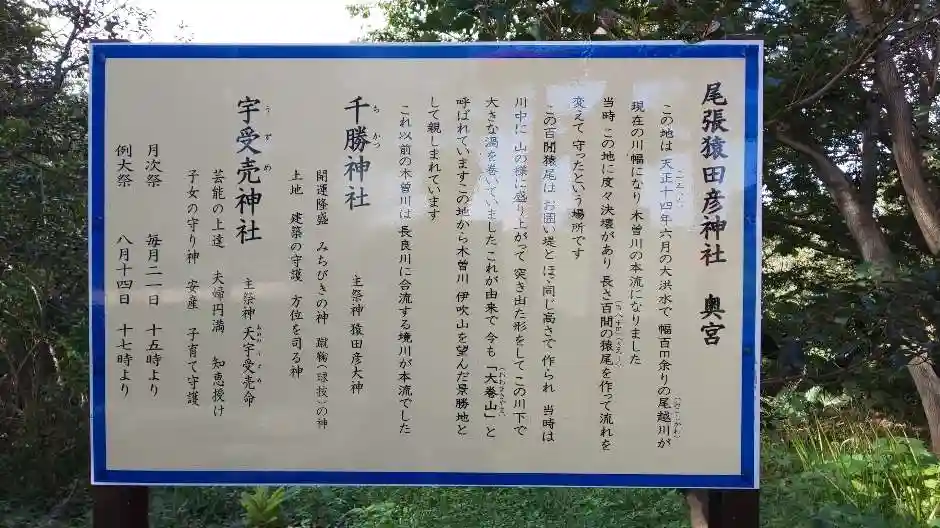 尾張猿田彦神社 奥宮
この地は 天正十四年六月の大洪水で 幅百m余りの尾越川が
現在の川幅になり 木曽川の本流になりました
当時 この地に度々決壊があり 長さ百間の猿尾を作って流れを
変えて 守ったという場所です
この百間猿尾は お囲い堤と ほゞ同じ高さで 作られ 当時は
川中に 山の様に盛り上がって 突き出た形をして この川下で
大きな渦を巻いていました これが由来で 今も「大巻山」と
呼ばれています この地から木曽川 伊吹山を望んだ景勝地と
して親しまれています
これ以前の木曽川は 長良川に合流する境川が本流でした
千勝神社 主祭神 猿田彦大神
ち かつ
開運隆盛 みちびきの神 蹴鞠(球技)の神
土地 建築の守護 方位を司る神
宇受売神社 主祭神 天宇受売命
う ず め
あめのうずめ
芸能の上達 夫婦円満 知恵授け
子女の守り神 安産 子育て守護
月次祭 毎月二一日 十五時より
例大祭 八月十四日 十七時より